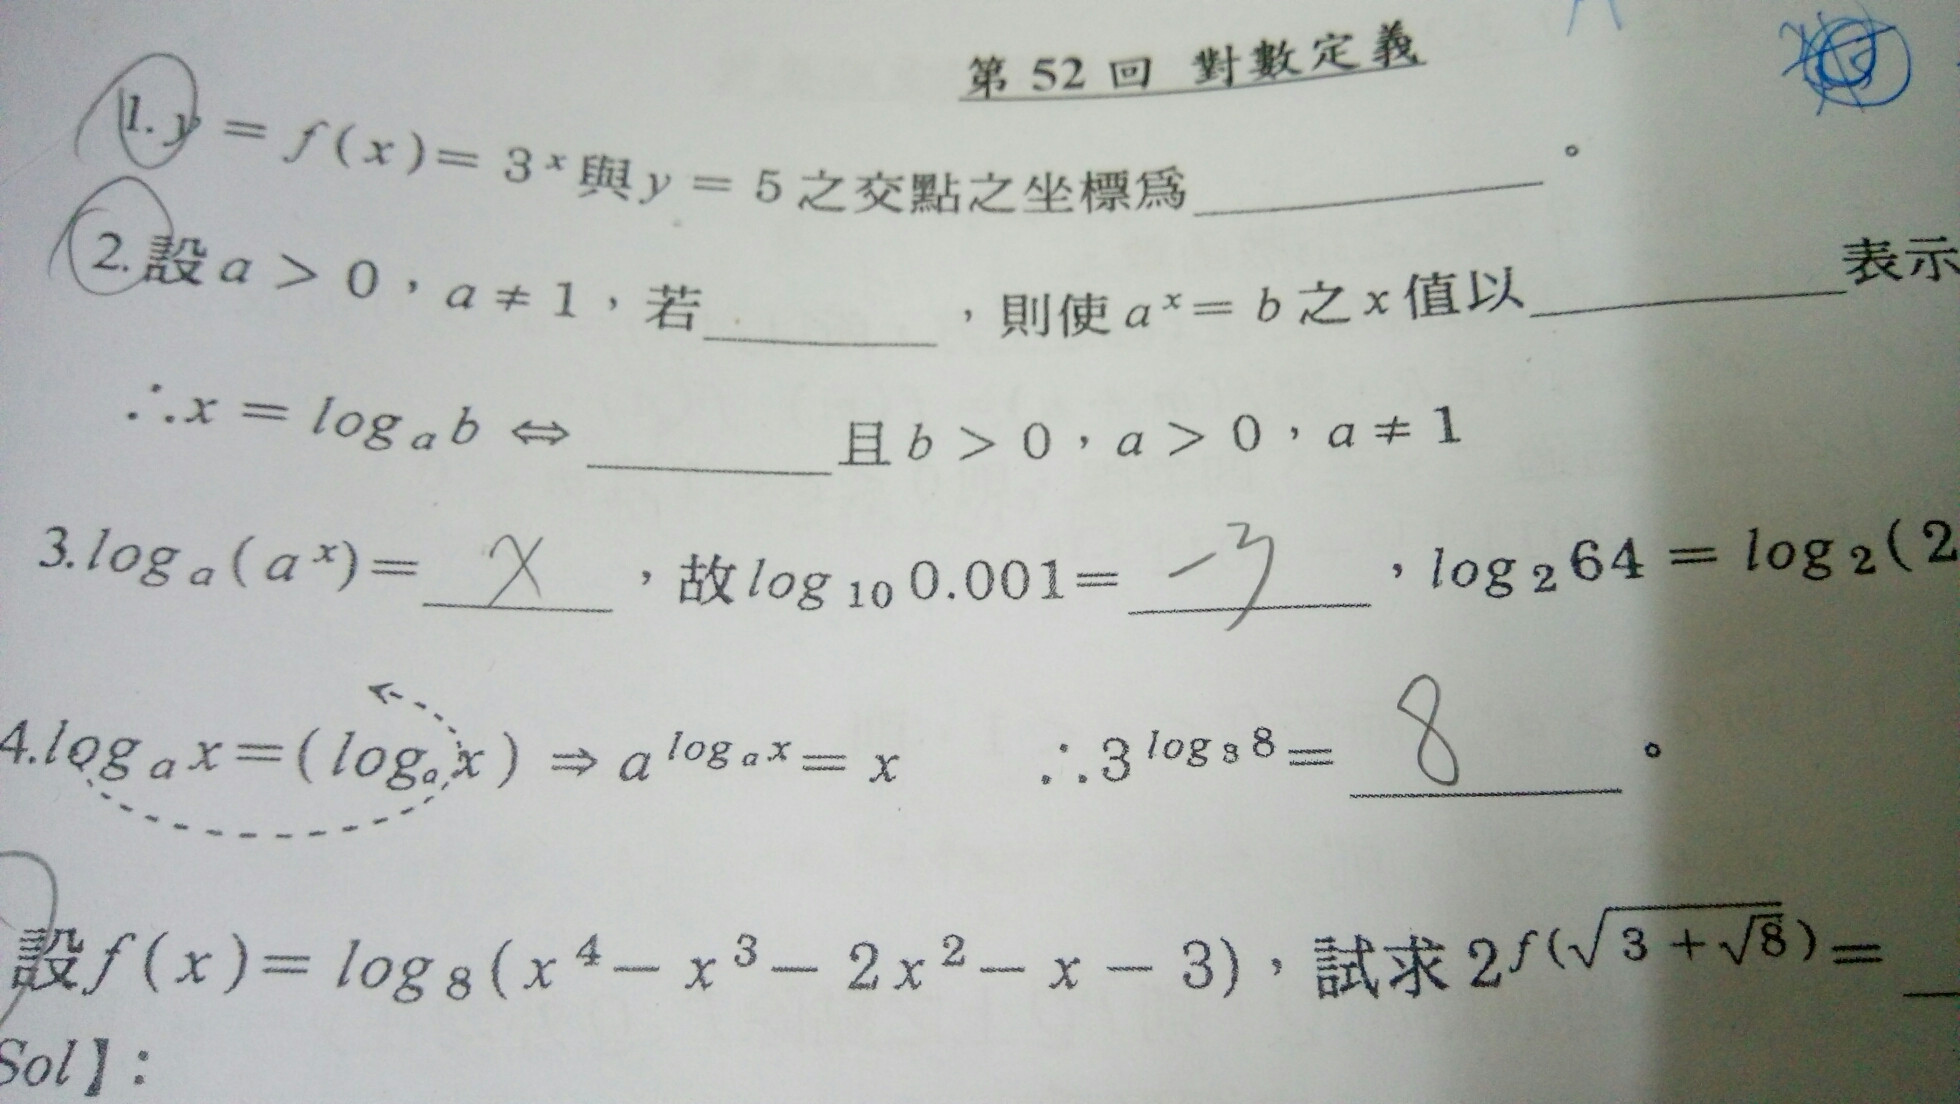 第 52 回 對數定義
1. y = f(x) = 3^x 與 y = 5 之交點之坐標為__________。
2. 設 a > 0，a ≠ 1，若________，則使 a^x = b 之 x 值以__________表示
∴x = log_a b ⇔ ________且 b > 0，a > 0，a ≠ 1
3. log_a(a^x) = x，故 log_10 0.001 = -3，log_2 64 = log_2(2
4. log_a x = (log_a x) ⇒ a^(log_a x) = x ∴3^(log_3 8) = 8。
設 f(x) = log_8(x^4 - x^3 - 2x^2 - x - 3)，試求 2^f(√(3 + √8)) = __
Sol】: